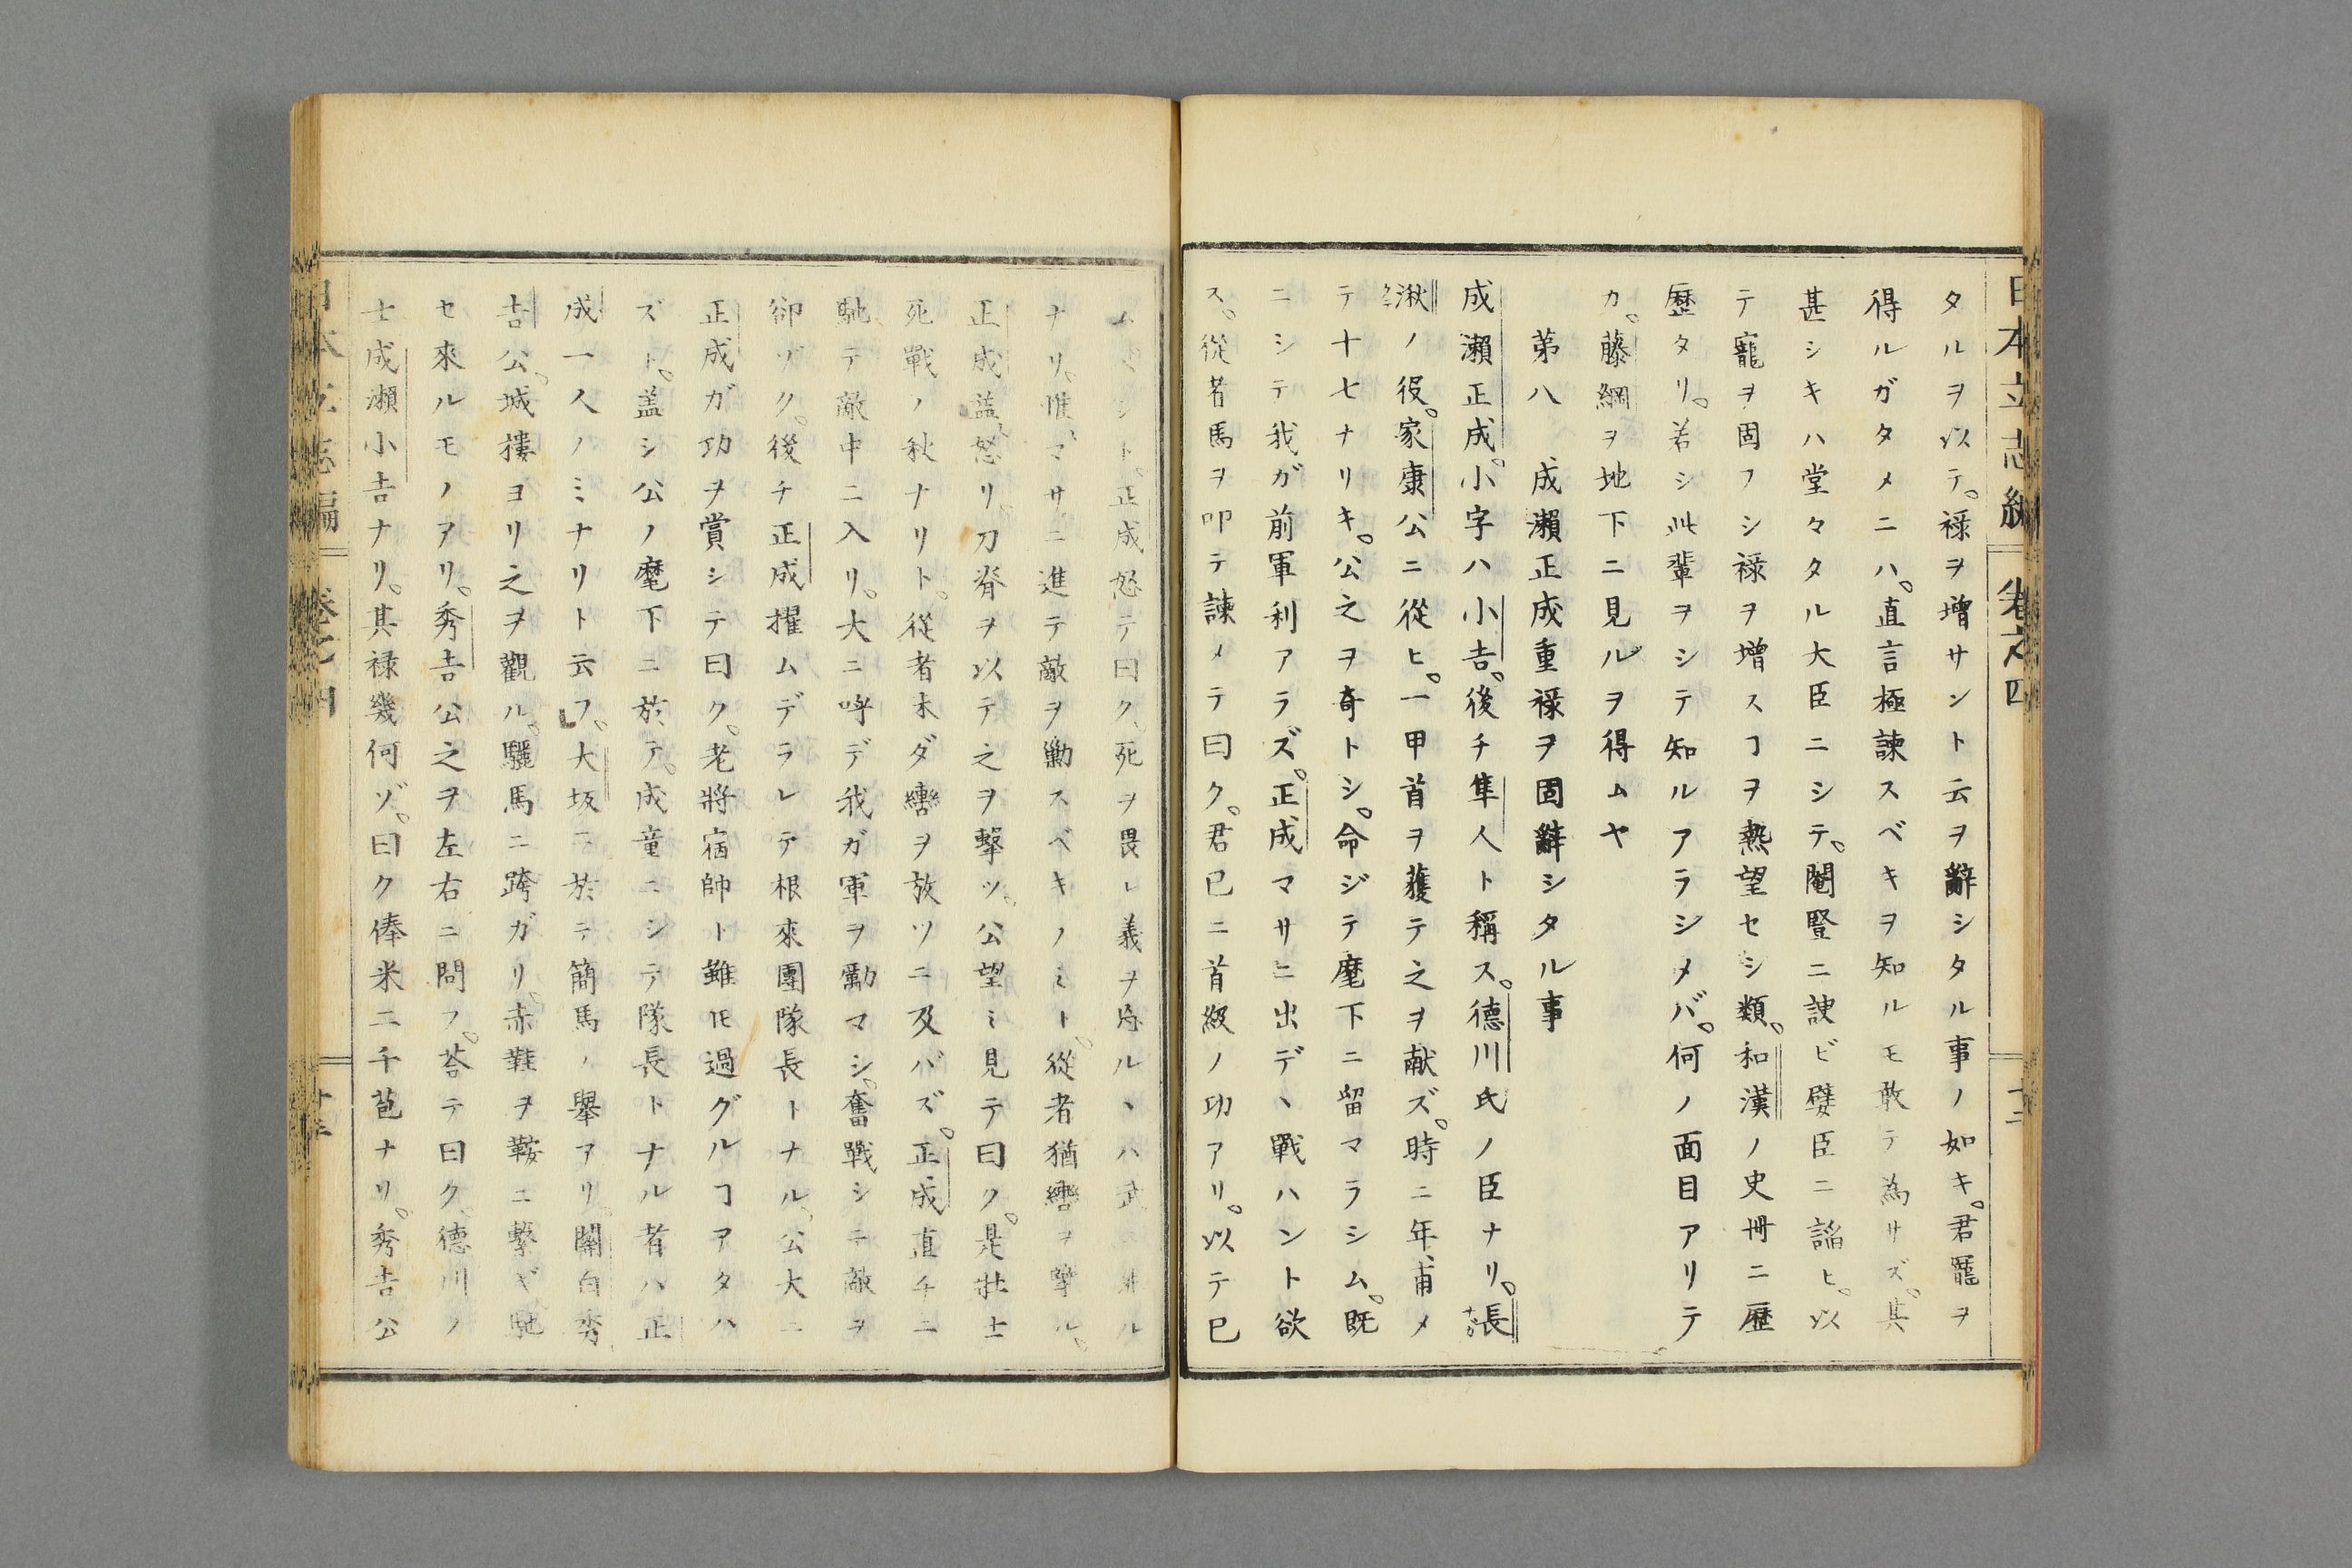 日本立志編 卷之四 十二
タルヲ以テ。禄ヲ增サント云ヲ辭シタル事ノ如キ。君寵ヲ
得ルガタメニハ。直言極諫スベキヲ知ルモ敢テ為サズ。其
甚シキハ堂々タル大臣ニシテ。閹豎ニ諛ビ嬖臣ニ謟ヒ。以
テ寵ヲ固フシ禄ヲ增スヿヲ熱望セシ類。和漢ノ史冊ニ歷
歷タリ。若シ此輩ヲシテ知ルアラシメバ。何ノ面目アリテ
カ。藤綱ヲ地下ニ見ルヲ得ムヤ
第八 成瀨正成重禄ヲ固辭シタル事
成瀨正成。小字ハ小吉。後チ隼人ト稱ス。德川氏ノ臣ナリ。長
湫ノ役。家康公ニ從ヒ。一甲首ヲ獲テ之ヲ献ズ。時ニ年甫メ
テ十七ナリキ。公之ヲ奇トシ。命ジテ麾下ニ留マラシム。既
ニシテ我ガ前軍利アラズ。正成マサニ出デヽ戰ハント欲
ス。從者馬ヲ叩テ諫メテ曰ク。君已ニ首級ノ功アリ。以テ已
ムベシト。正成怒テ曰ク。死ヲ畏レ義ヲ ルヽハ武 ル
ナリ。惟マサニ進テ敵ヲ勦スベキノミト。從者猶轡ヲ擥ル。
正成益怒リ。刀脊ヲ以テ之ヲ擊ツ。公望ミ見テ曰ク。是壯士
死戰ノ秋ナリト。從者未ダ轡ヲ放ツニ及バズ。正成直チニ
馳テ敵中ニ入リ。大ニ呼デ我ガ軍ヲ勵マシ。奮戰シテ敵ヲ
卻ゾク。後チ正成擢ムデラレテ根來團隊長トナル。公大ニ
正成ガ功ヲ賞シテ曰ク。老將宿帥ト雖𪜈過グルヿアタハ
ズト。盖シ公ノ麾下ニ於テ。成童ニシテ隊長トナル者ハ正
成一人ノミナリト云フ。大坂ニ於テ簡馬ノ擧アリ。關白秀
吉公。城樓ヨリ之ヲ觀ル。驪馬ニ跨ガリ。赤鞋ヲ鞍ニ繫ギ馳
セ來ルモノヲリ。秀吉公之ヲ左右ニ問フ。荅テ曰ク。德川ノ
士成瀨小吉ナリ。其禄幾何ゾ。曰ク俸米二千苞ナリ。秀吉公
日本立志編 卷之四